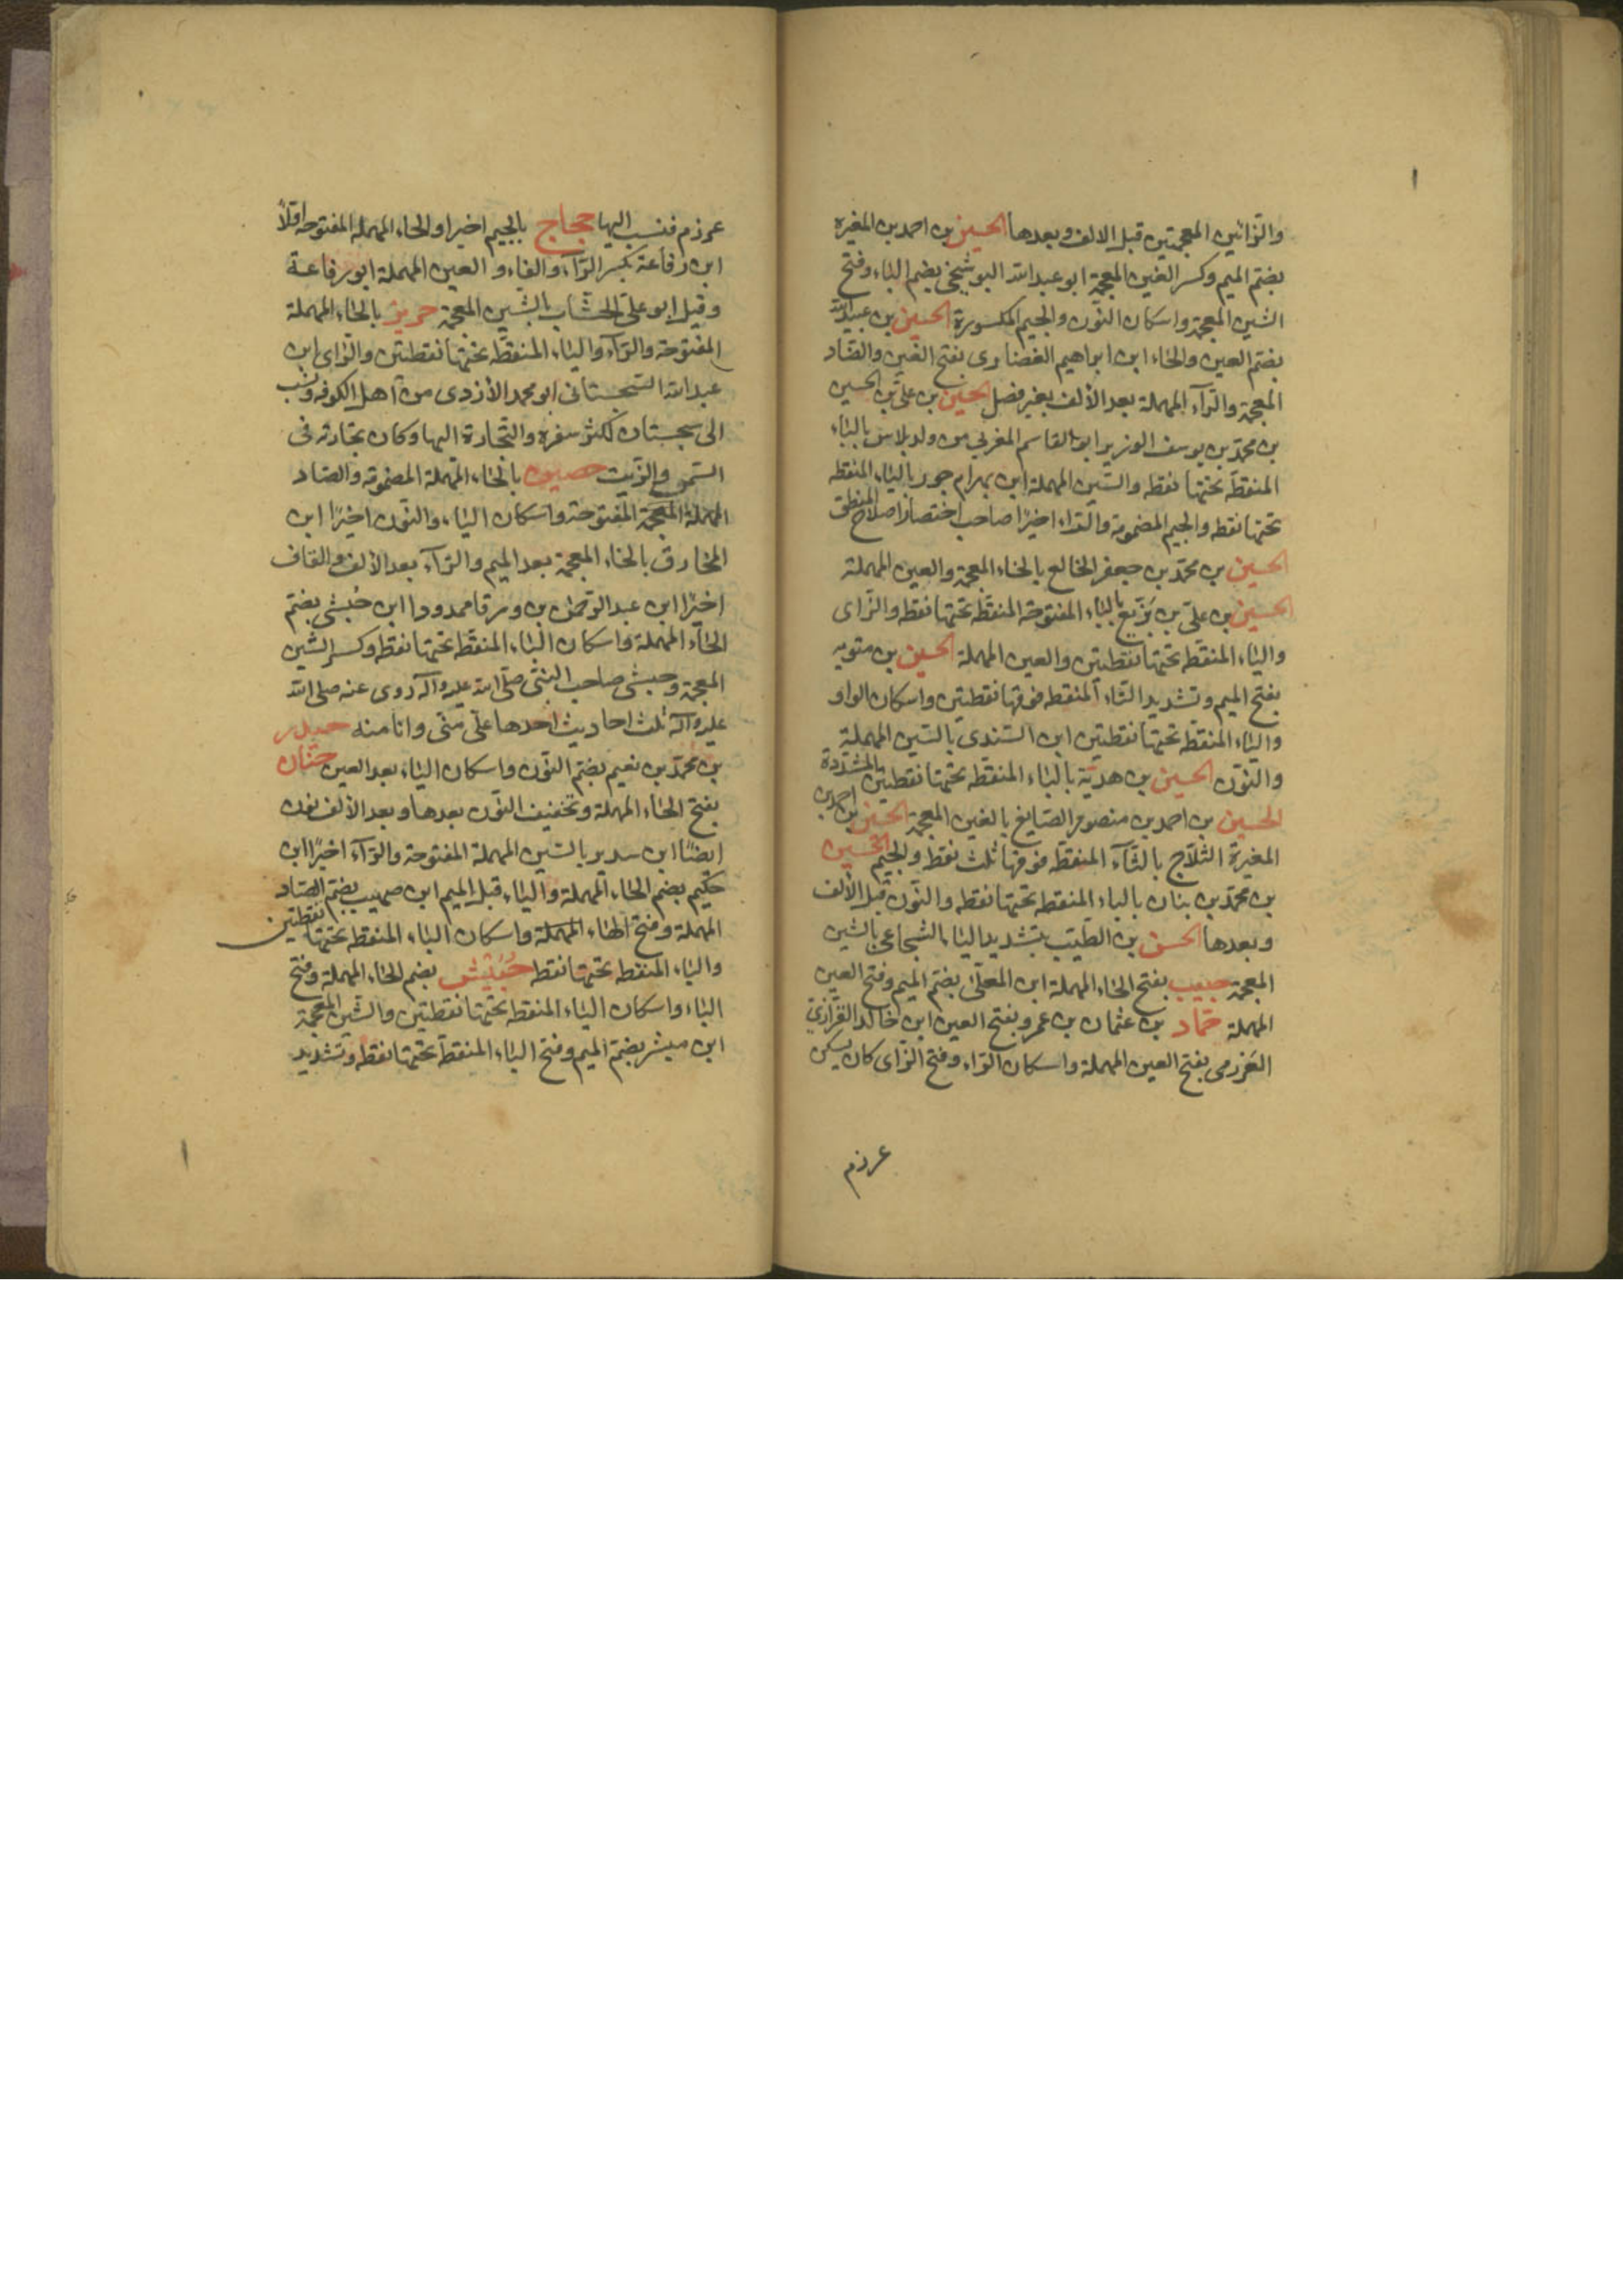 والزائين المعجمتين قبل الالف وبعدها الحسين بن احمد بن المغيرة
بضم الميم وكسر الغين المعجمة ابو عبد الله البوشنجي بضم الباء وفتح
الشين المعجمة واسكان النون والجيم المكسورة الحسين بن عبيد الله
بضم العين والحاء ابن ابراهيم الغضاري بفتح الغين والضاد
المعجمة والرآء المهملة بعد الألف بغير فصل الحسين بن علي بن الحسين
بن محمد بن يوسف الوزير ابو القاسم المغربي من ولد بلاس بالباء
المنقطة تحتها نقطه والسين المهملة ابن بهرام جور بالباء المنقطه
تحتها نقطه والجيم المضمومة والراء اخيرا صاحب اختصار اصلاح المنطق
الحسين بن محمد بن جعفر الخالع بالخاء المعجمة والعين المهملة
الحسين بن علي بن بزيع بالباء المفتوحة المنقطة تحتها نقطه والزاى
والياء المنقطه تحتها نقطتين والعين المهملة الحسين بن متويه
بفتح الميم وتشديد التاء المنقطه فوقها نقطتين واسكان الواو
والياء المنقطه تحتها نقطتين ابن السندى بالسين المهملة
والنون الحسين بن هدية بالياء المنقطه تحتها نقطتين المشددة
الحسين بن احمد بن منصور الصايغ بالغين المعجمة الحسين بن احمد بن
المغيرة الثلاج بالثآء المنقطه فوقها ثلث نقط والجيم الحسين
بن محمد بن بنان بالباء المنقطه تحتها نقطه والنون قبل الألف
وبعدها الحسن بن الطيب بتشديد الياء الشجاعي بالشين
المعجمة حبيب بفتح الحاء المهملة ابن المعلى بضم الميم وفتح العين
المهملة حماد بن عثمان بن عمرو بفتح العين ابن خالد الفزاري
العرزمي بفتح العين المهملة واسكان الراء وفتح الزاى كان يسكن
عرزم
عرزم فنسب اليها حجاج بالجيم اخيرا والحاء المهملة المفتوحة اولاً
ابن رفاعة بكسر الرآء والفاء والعين المهملة ابو رفاعة
وقيل ابو علي الخشاب بالشين المعجمة حريز بالحاء المهملة
المفتوحة والرآء والياء المنقطة تحتها نقطتين والزاى ابن
عبد الله السجستاني ابو محمد الأزدى من اهل الكوفه ونسب
الى سجستان لكثر سفره والتجارة اليها وكان تجارته في
السمن والزيت حصين بالحاء المهملة المضمومة والضاد
المهملة المعجمة المفتوحة واسكان الياء والنون اخيرًا ابن
المخارق بالخاء المعجمة بعد الميم والرآء بعد الألف والقاف
اخيرًا ابن عبد الرحمن بن ورقا ممدودا ابن حبشي بضم
الحاء المهملة واسكان الباء المنقطة تحتها نقطه وكسر الشين
المعجمة وحبشي صاحب النبي صلى الله عليه وآله روى عنه صلى الله
عليه وآله ثلث احاديث احدها علي مني وانا منه حيدر
بن محمد بن نعيم بضم النون واسكان الياء بعد العين حنان
بفتح الحاء المهملة وتخفيف النون بعدها وبعد الألف نون
ايضًا ابن سدير بالسين المهملة المفتوحة والرآء اخيرًا ابن
حكيم بضم الحاء المهملة والياء قبل الميم ابن صهيب بضم الصاد
المهملة وفتح الهاء المهملة واسكان الياء المنقطه تحتها نقطتين
والباء المنقطه تحتها نقطه حبيش بضم الحاء المهملة وفتح
الباء واسكان الياء المنقطه تحتها نقطتين والشين المعجمة
ابن مبشر بضم الميم وفتح الباء المنقطة تحتها نقطه وتشديد